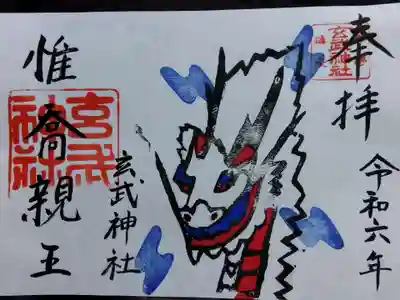 奉拝
令和六年
玄武神社
玄武神社
惟喬親王
玄武
神社